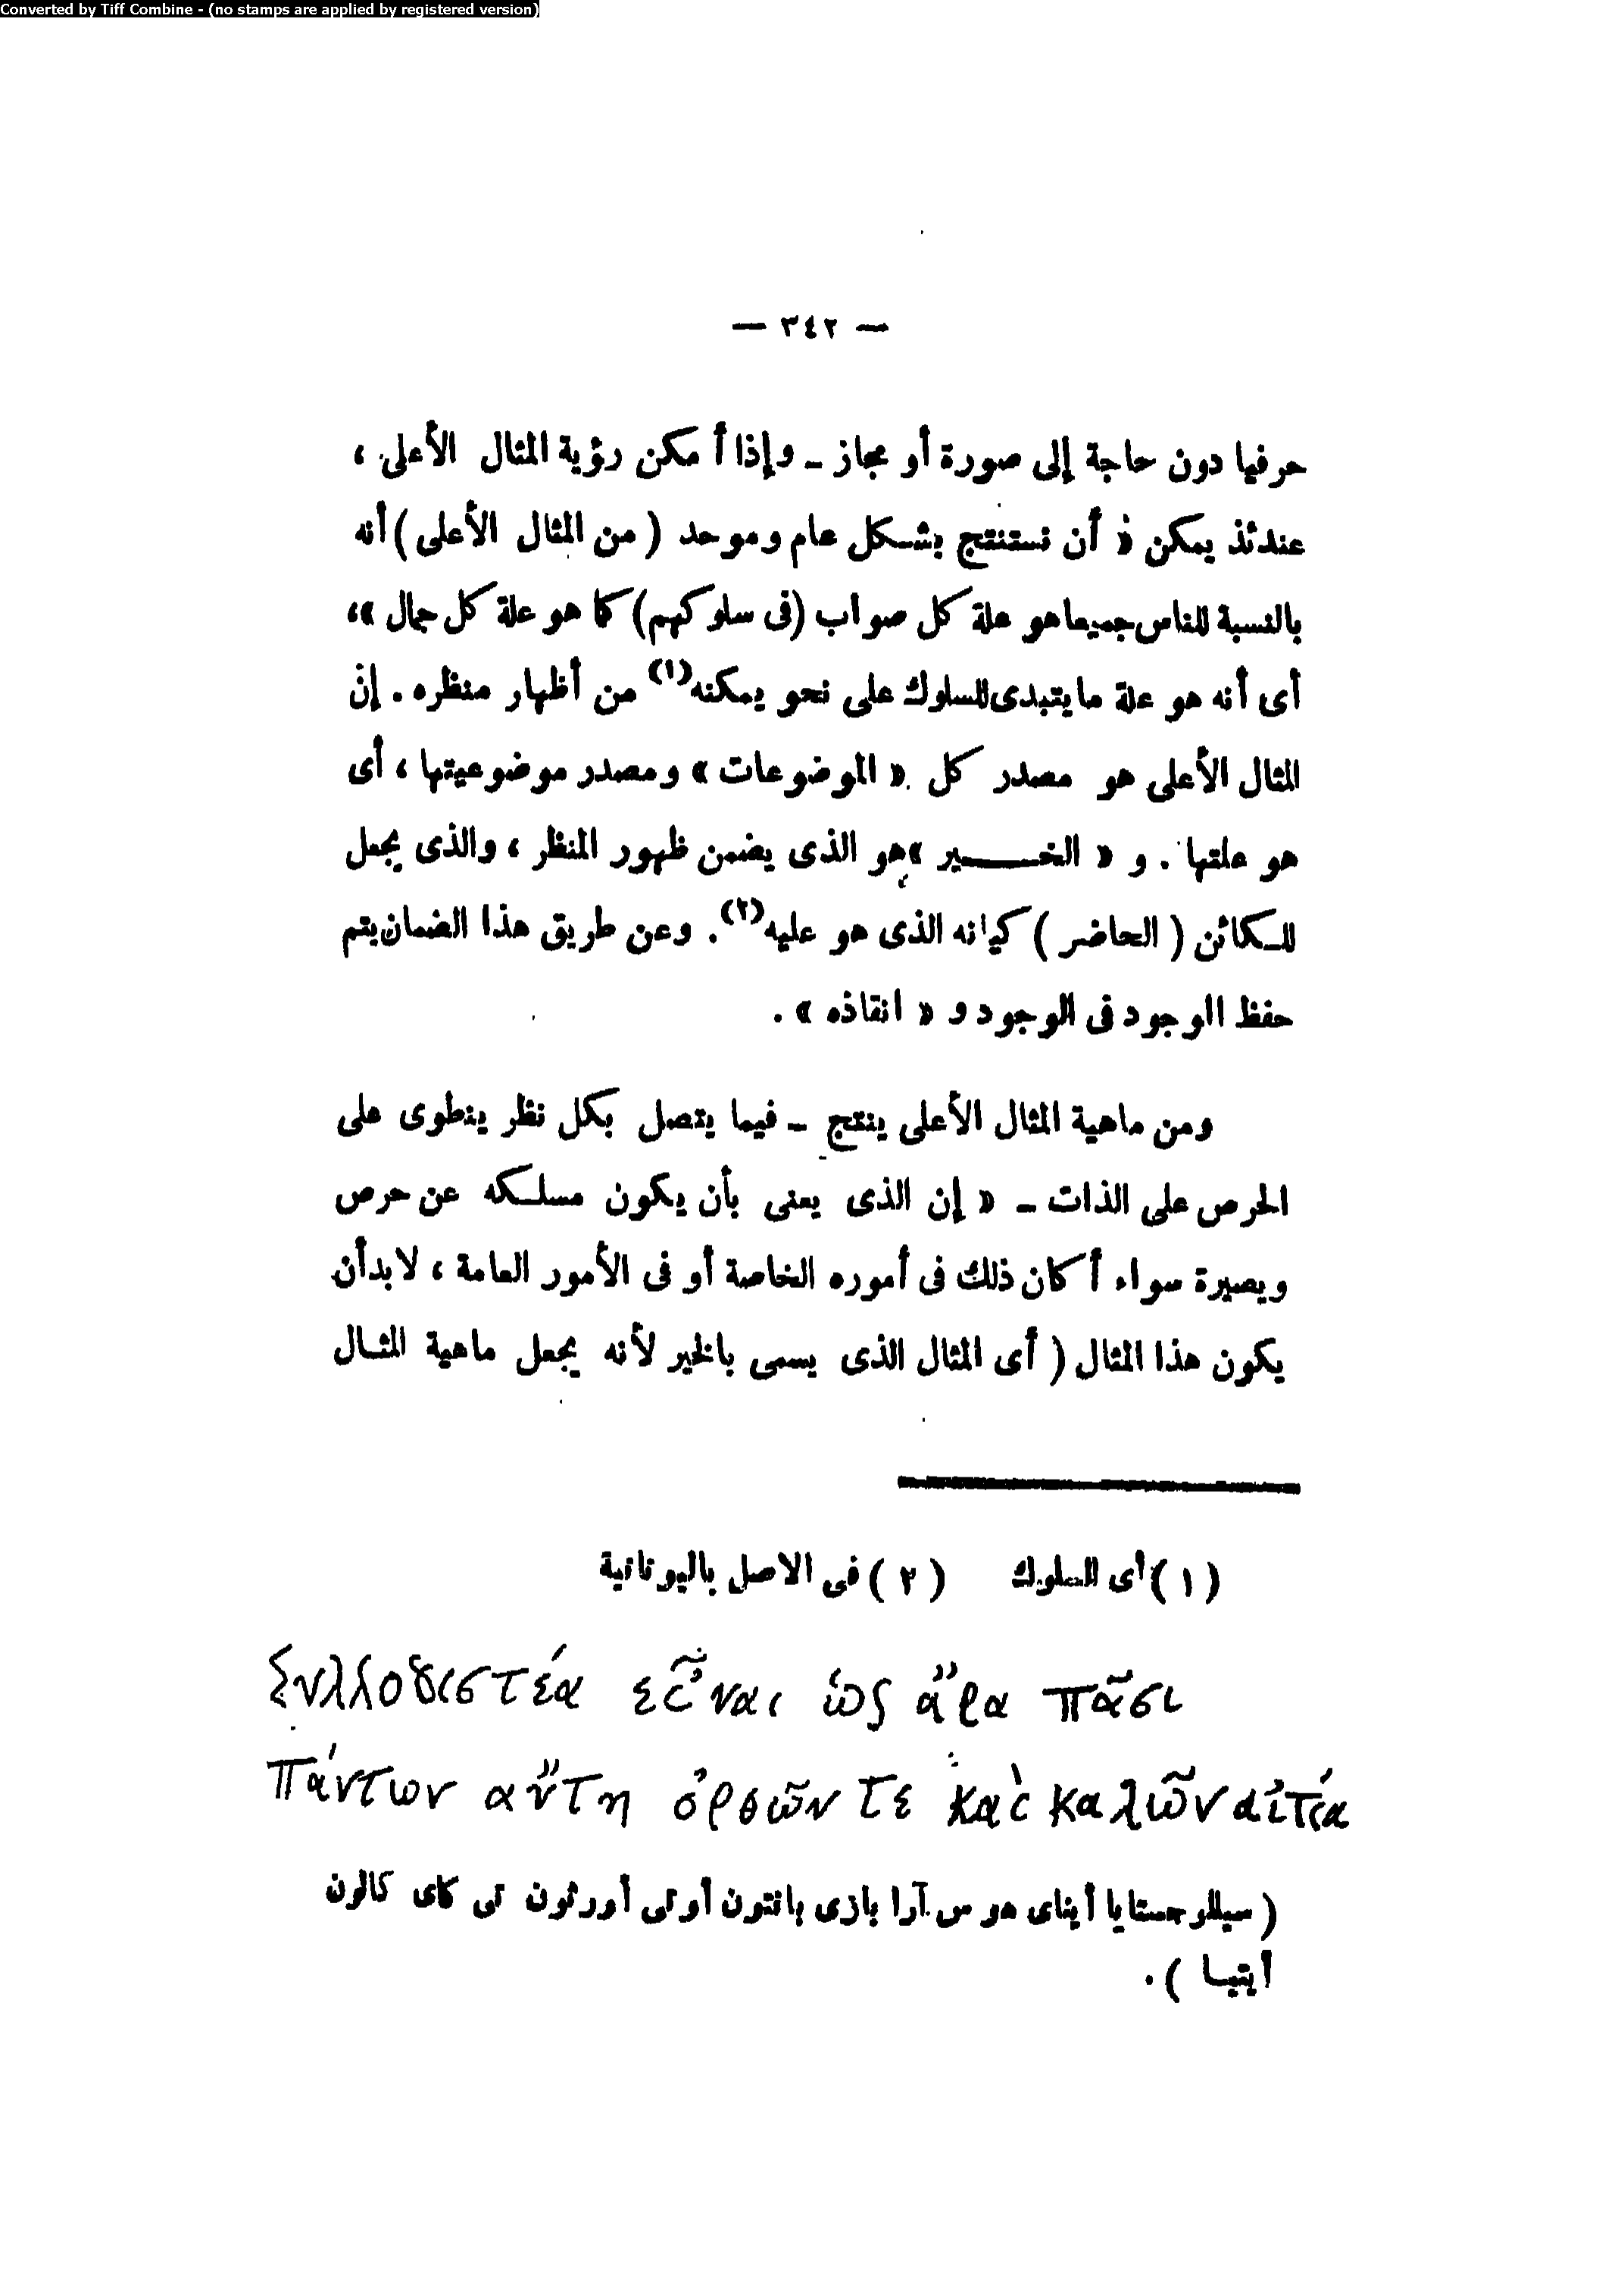 Converted by Tiff Combine - (no stamps are applied by registered version)
— ٣٤٢ —
حرفيا دون حاجة إلى صورة أو مجاز ـ وإذا أمكن رؤية المثال الأعلى ،
عندئذ يمكن « أن نستنتج بشكل عام وموحد ( من المثال الأعلى ) أنه
بالنسبة للناس جميعا هو علة كل صواب (فى سلوكهم) كما هو علة كل جمال »،
أى أنه هو علة ما يتبدى للسلوك على نحو يمكنه(١) من أظهار منظره . إن
المثال الأعلى هو مصدر كل « الموضوعات » ومصدر موضوعيتها ، أى
هو علتها . و « الخــــير » هو الذى يضمن ظهور المنظر ، والذى يجعل
للـكائن ( الحاضر ) كيانه الذى هو عليه(٢). وعن طريق هذا الضمان يتم
حفظ الوجود فى الوجود و « انقاذه » .
ومن ماهية المثال الأعلى ينتج ـ فيما يتصل بكل نظر ينطوى على
الحرص على الذات ـ « إن الذى يعنى بأن يكون مسلـكه عن حرص
وبصيرة سواء أكان ذلك فى أموره الخاصة أو فى الأمور العامة ، لابد أن
يكون هذا المثال ( أى المثال الذى يسمى بالخير لأنه يجعل ماهية المثـال
(١) أى للسلوك (٢) فى الاصل باليونانية
Συλλογιστέα εἶναι ὡς ἄρα πᾶσι
πάντων αὕτη ὀρθῶν τε καὶ καλῶν αἰτία
( سيللوجستايا أيناى هوس آرا بازى بانتون أوتى أورثون تى كاى كالون
أيتيـا ) .